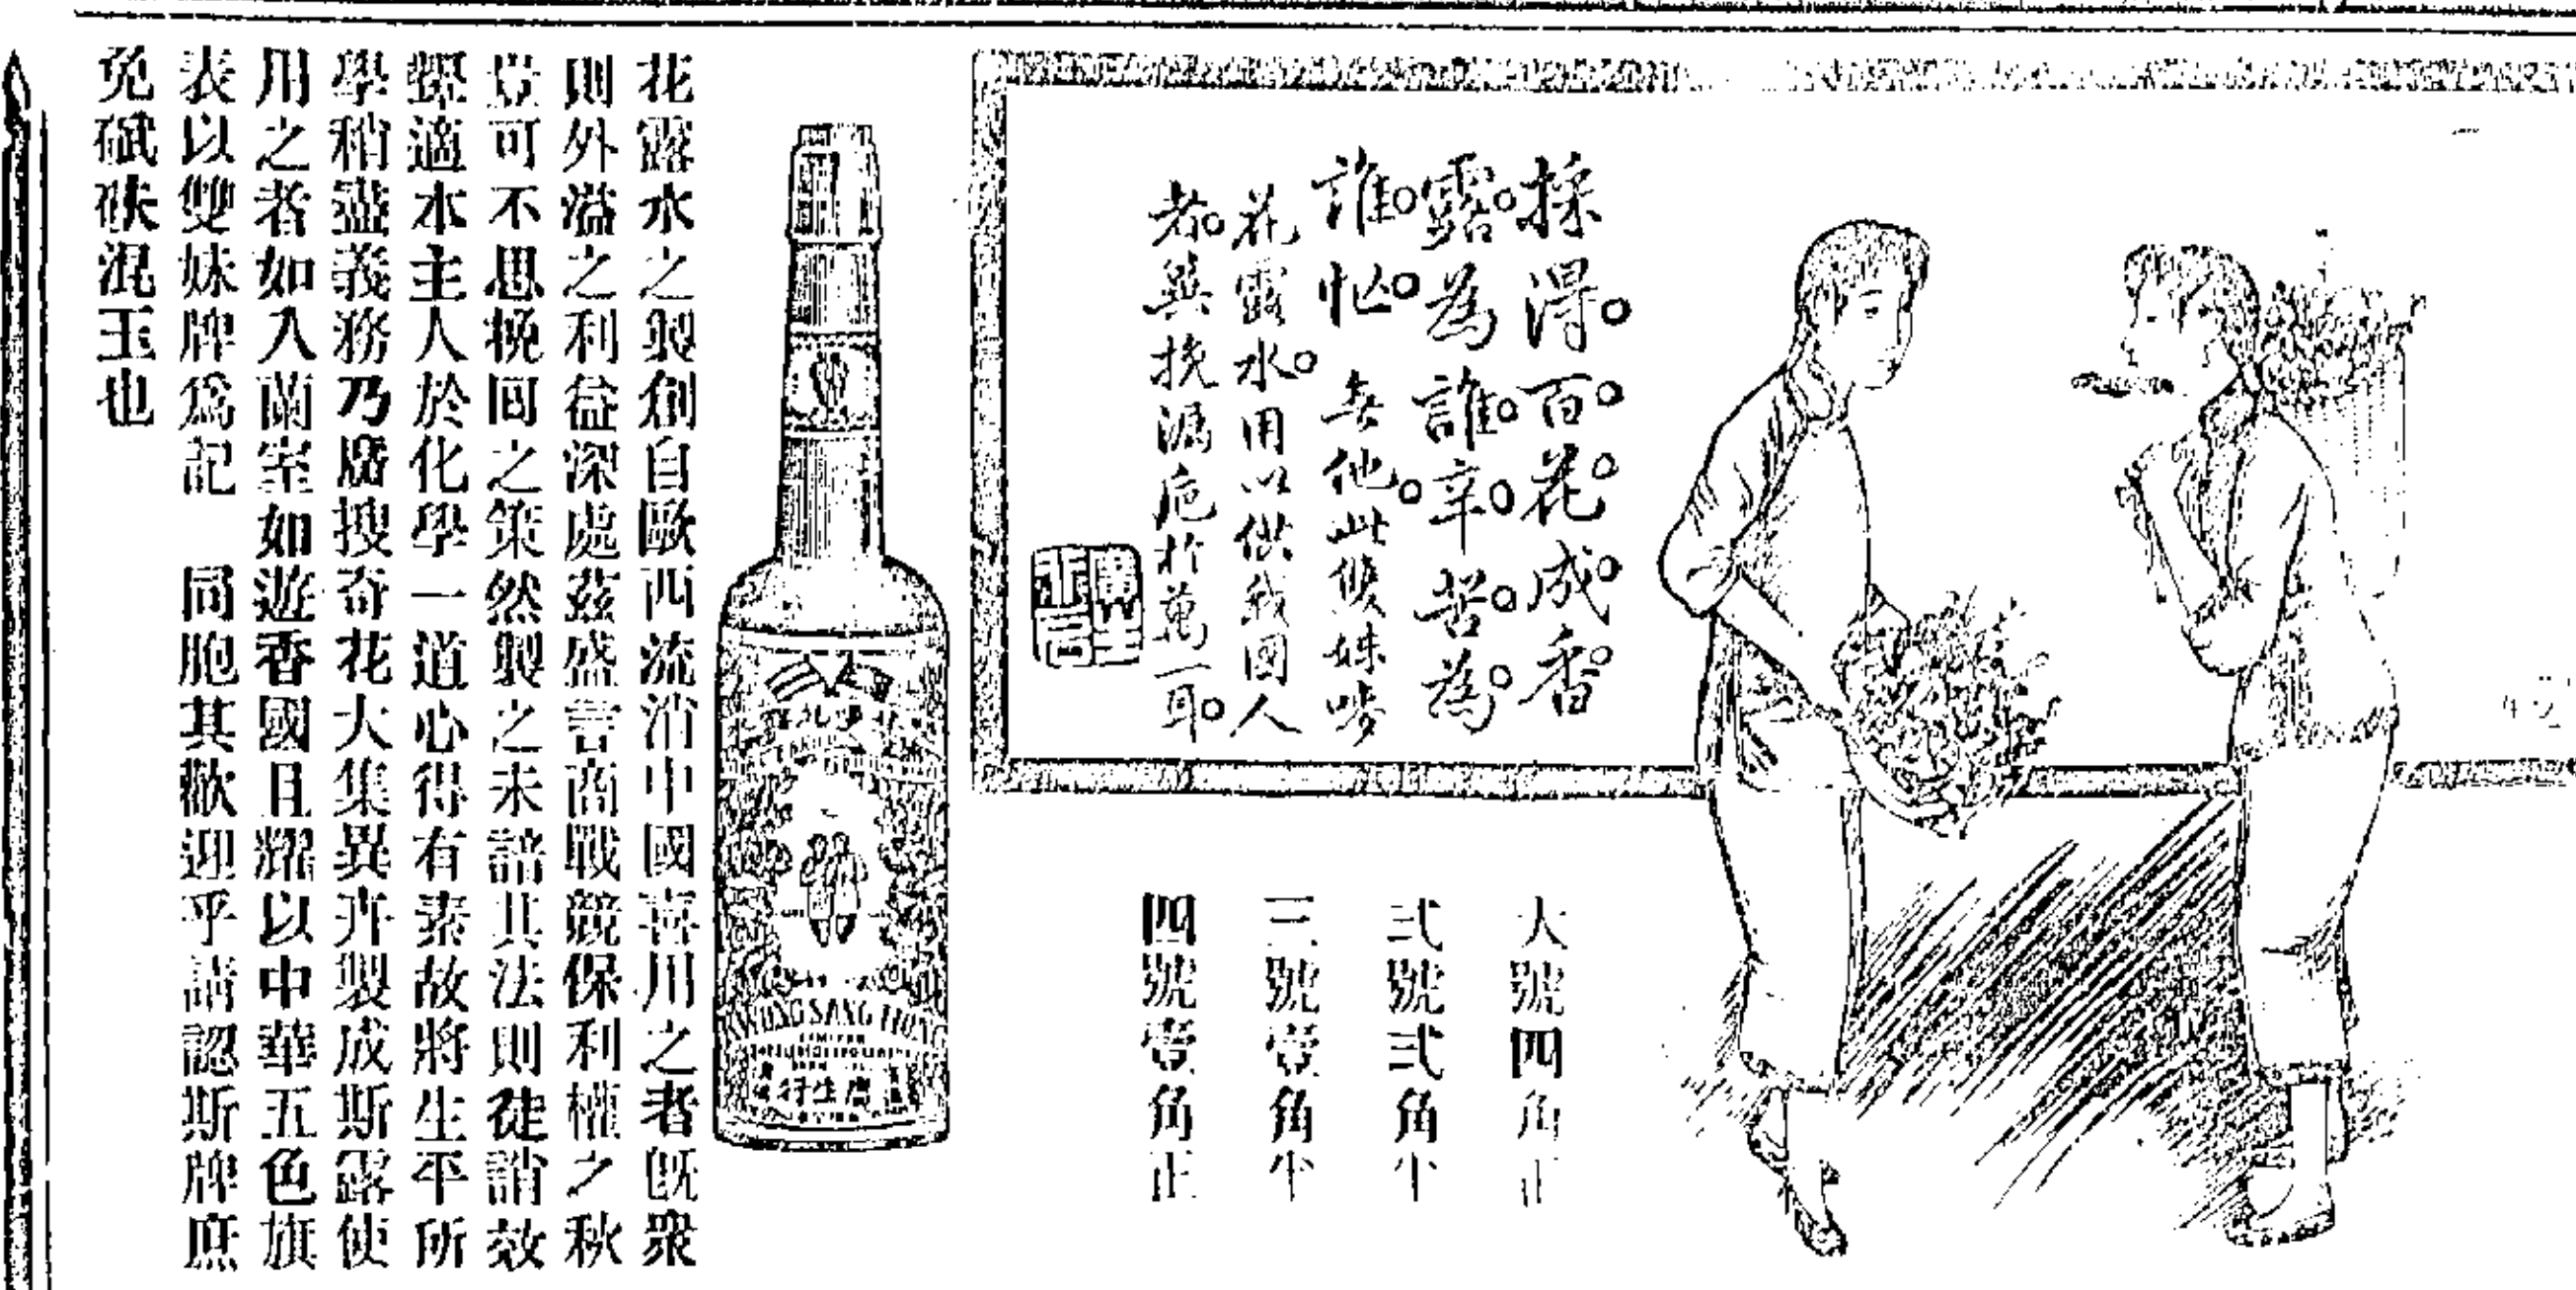 採得百花成香
露為誰辛苦為
誰忙 無他此係姝嘜
花露水用以供我國人
者冀挽漏巵於萬一耳
大號四角正
弍號弍角半
三號壹角半
四號壹角正
KWONG SANG HONG
LIMITED
廣生行
花露水之製創自歐西流消中國喜用之者旣衆
則外溢之利益深處茲盛言商戰競保利權之秋
豈可不思挽囘之策然製之未諳其法則徒誚效
顰適本主人於化學一道心得有素故將生平所
學稍盡義務乃廣搜奇花大集異卉製成斯露使
用之者如入蘭室如遊香國且耀以中華五色旗
表以雙妹牌爲記 同胞其歡迎乎請認斯牌庶
免碔砆混玉也